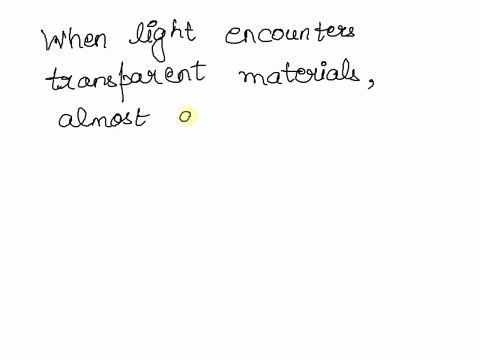 When light encounters
transparent materials,
almost